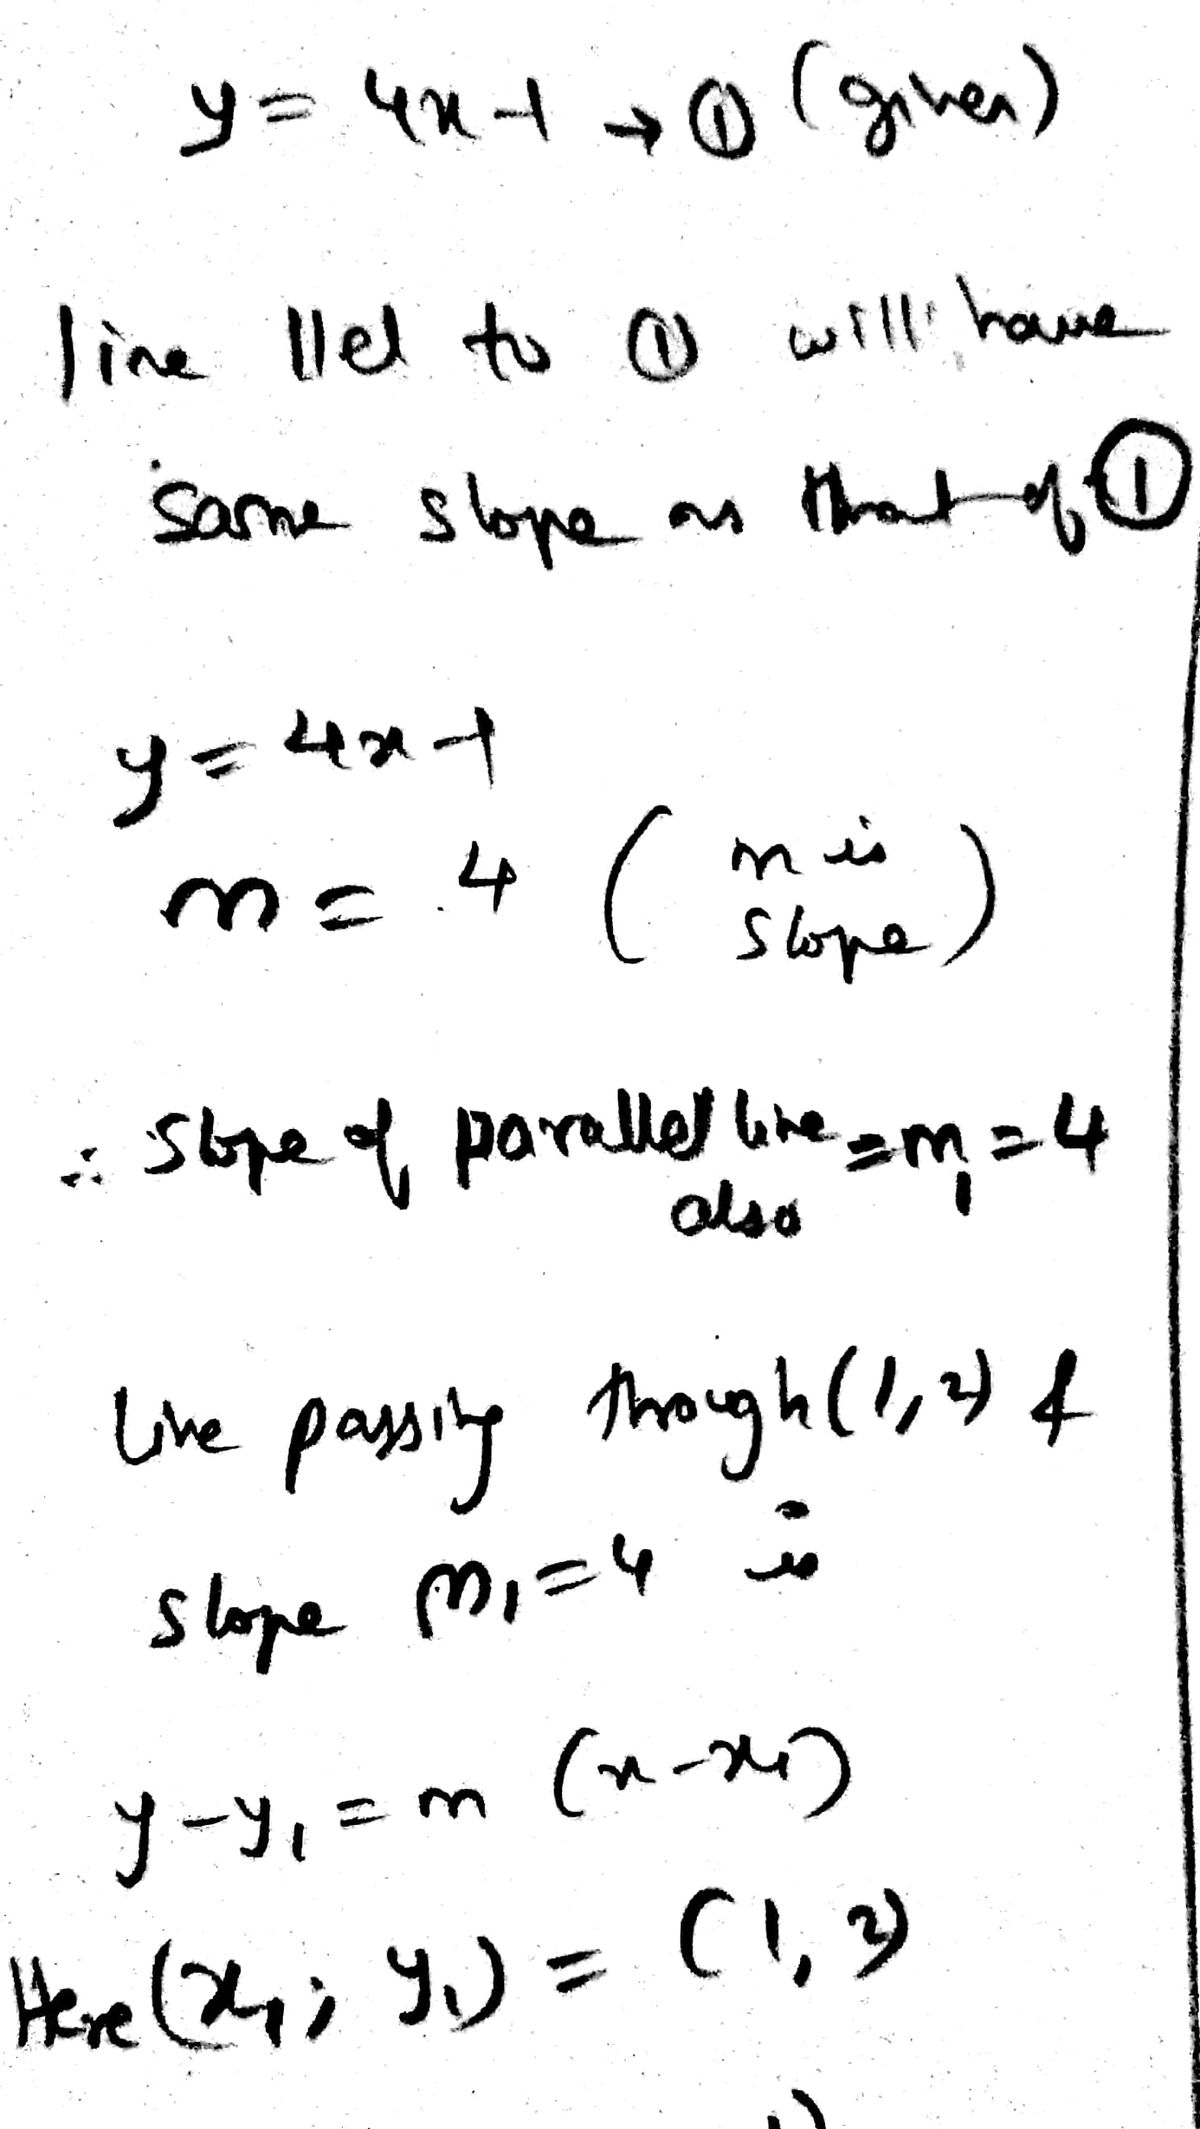 y = 4x-1 → ① (given)
line llel to ① will have
same slope as that of ①
y = 4x-1
m = 4 ( m is
slope )
∴ slope of parallel line = m₁ = 4
also
line passing through (1, 2) &
slope m₁ = 4 is
y - y₁ = m (x - x₁)
Here (x₁, y₁) = (1, 2)